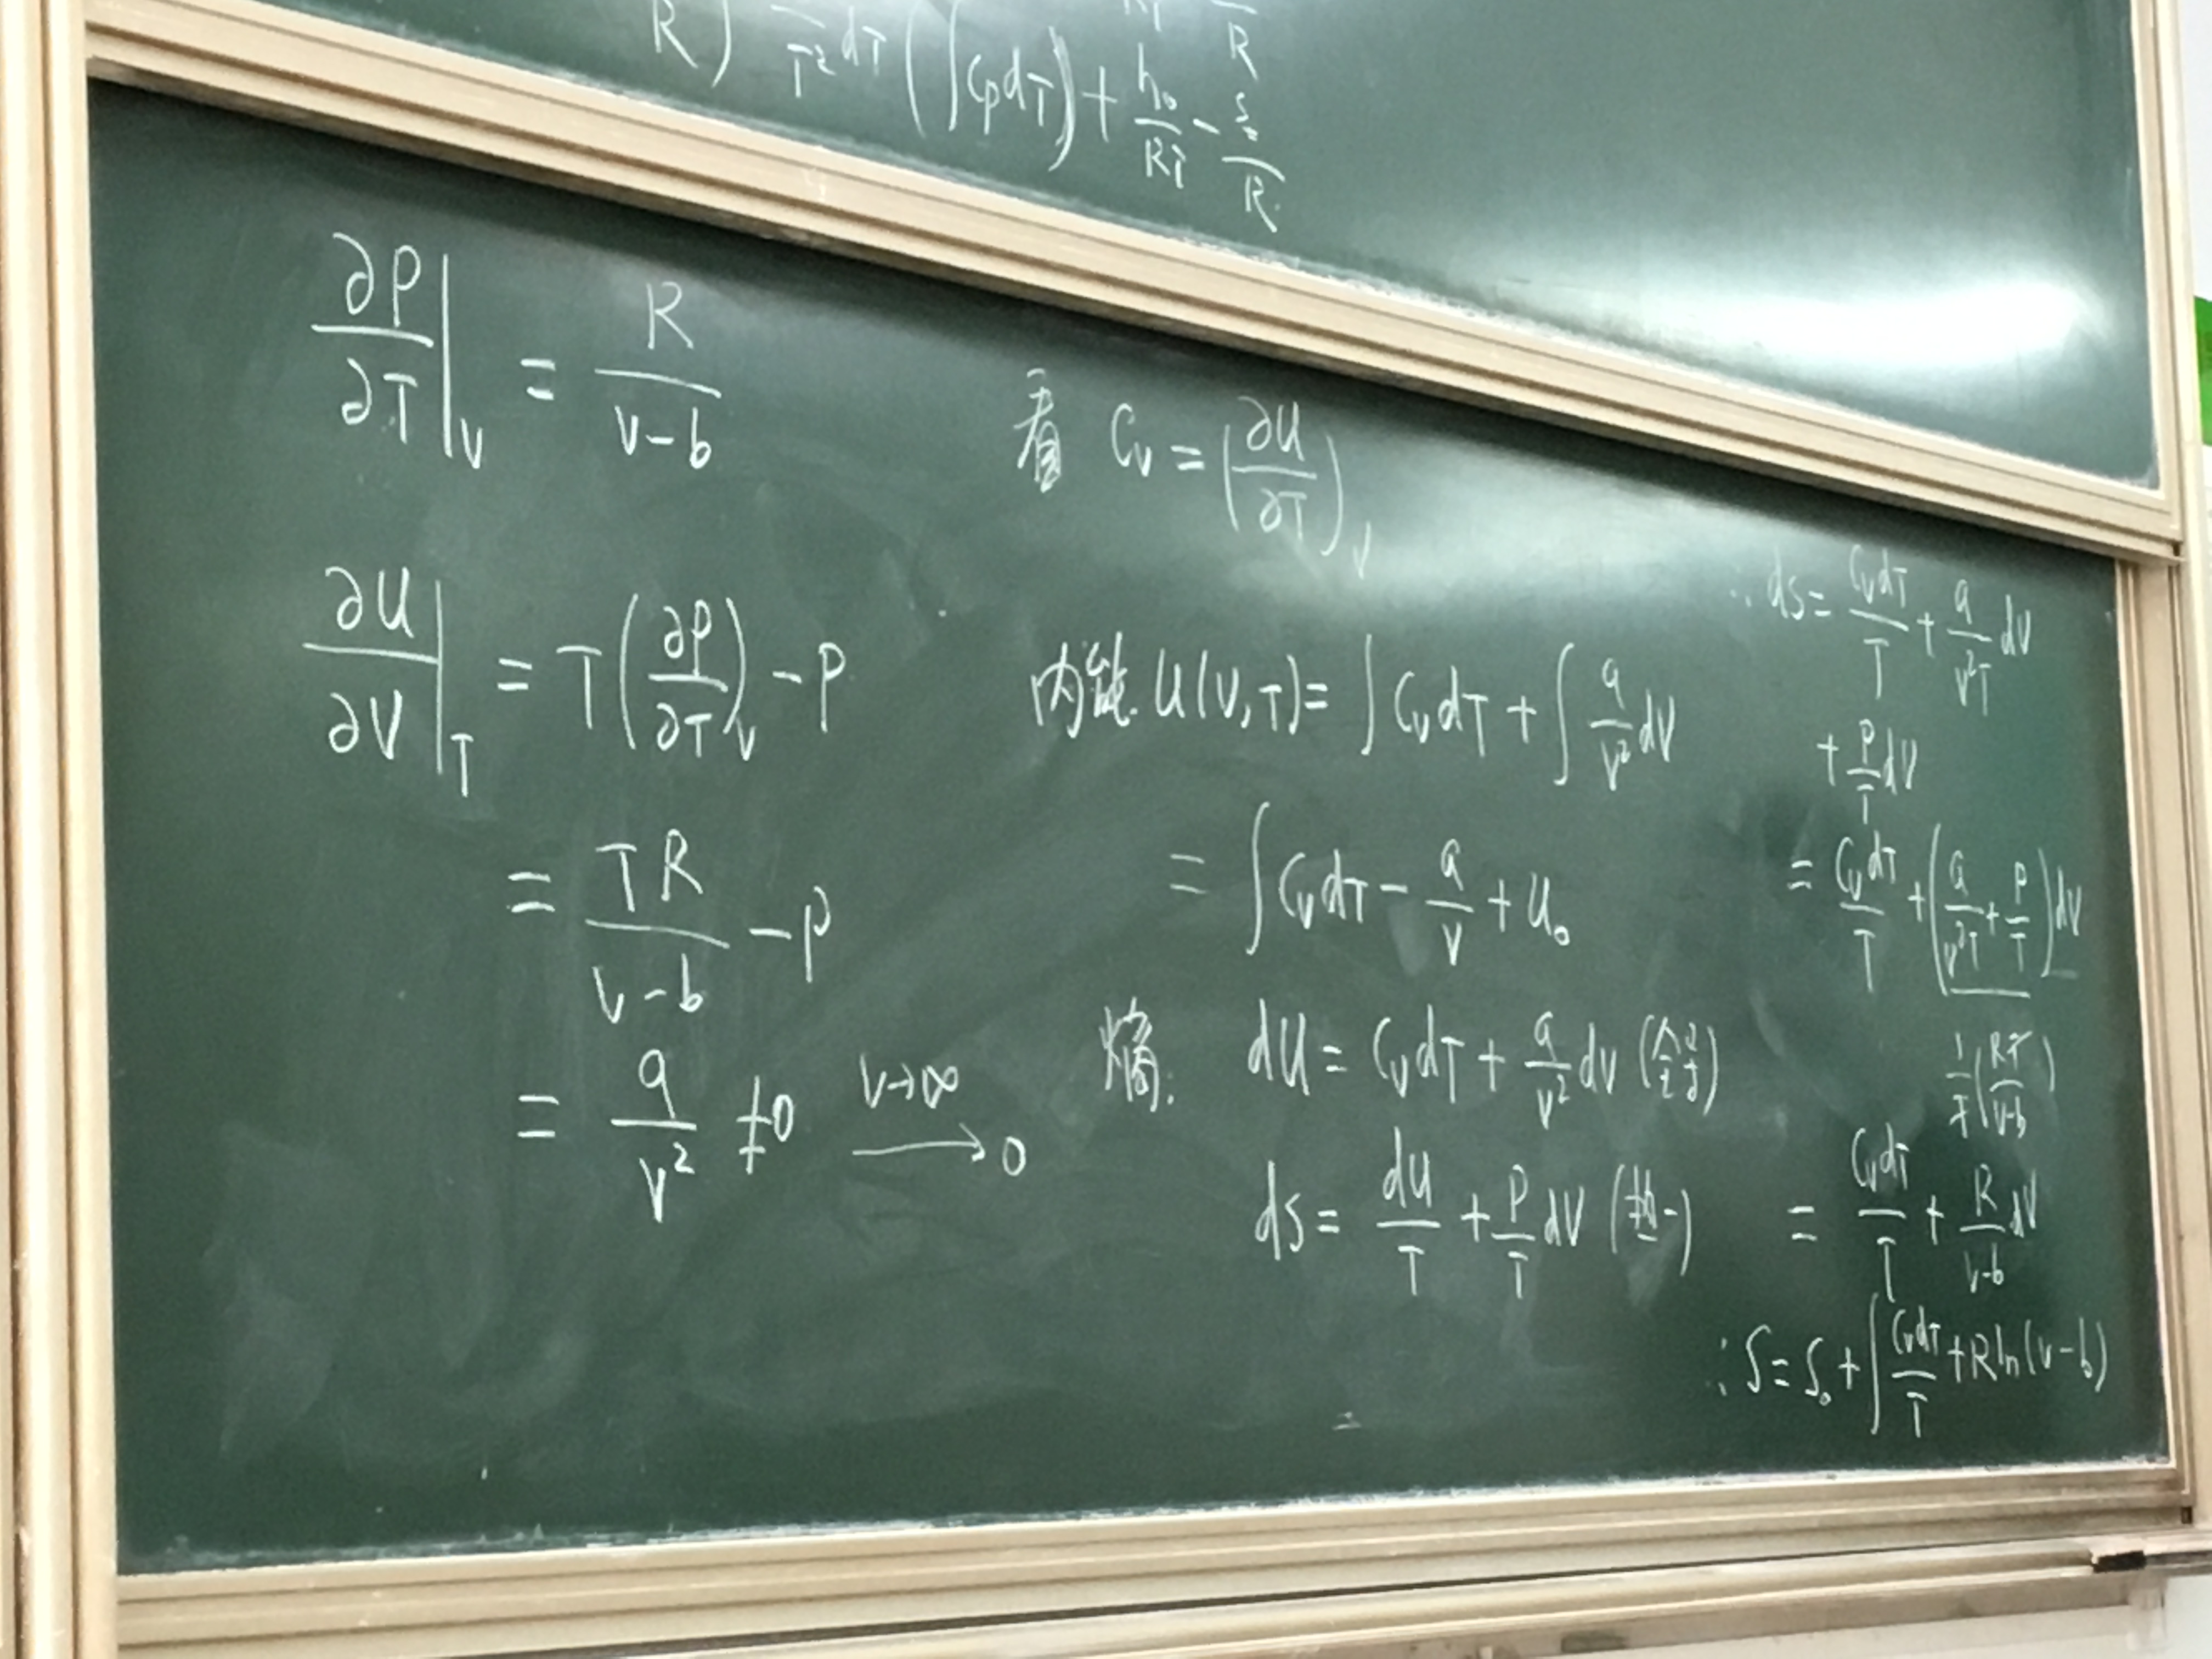 R) 1/T² dT (∫CpdT) + h₀/RT - S₀/R
∂P/∂T|_V = R/(v-b)
∂U/∂V|_T = T(∂P/∂T)_V - P
= TR/(v-b) - P
= a/v² ≠0 —v→∞→ 0
看 Cv = (∂U/∂T)_V
内能. U(V,T) = ∫CvdT + ∫a/v² dV
= ∫CvdT - a/v + U₀
熵. dU = CvdT + a/v² dV (全)
dS = dU/T + P/T dV (热一)
∴ dS = CvdT/T + a/(v²T) dV
+ P/T dV
= CvdT/T + (a/(v²T) + P/T)dV
1/T(RT/(v-b))
= CvdT/T + R/(v-b) dV
∴ S = S₀ + ∫CvdT/T + Rln(v-b)